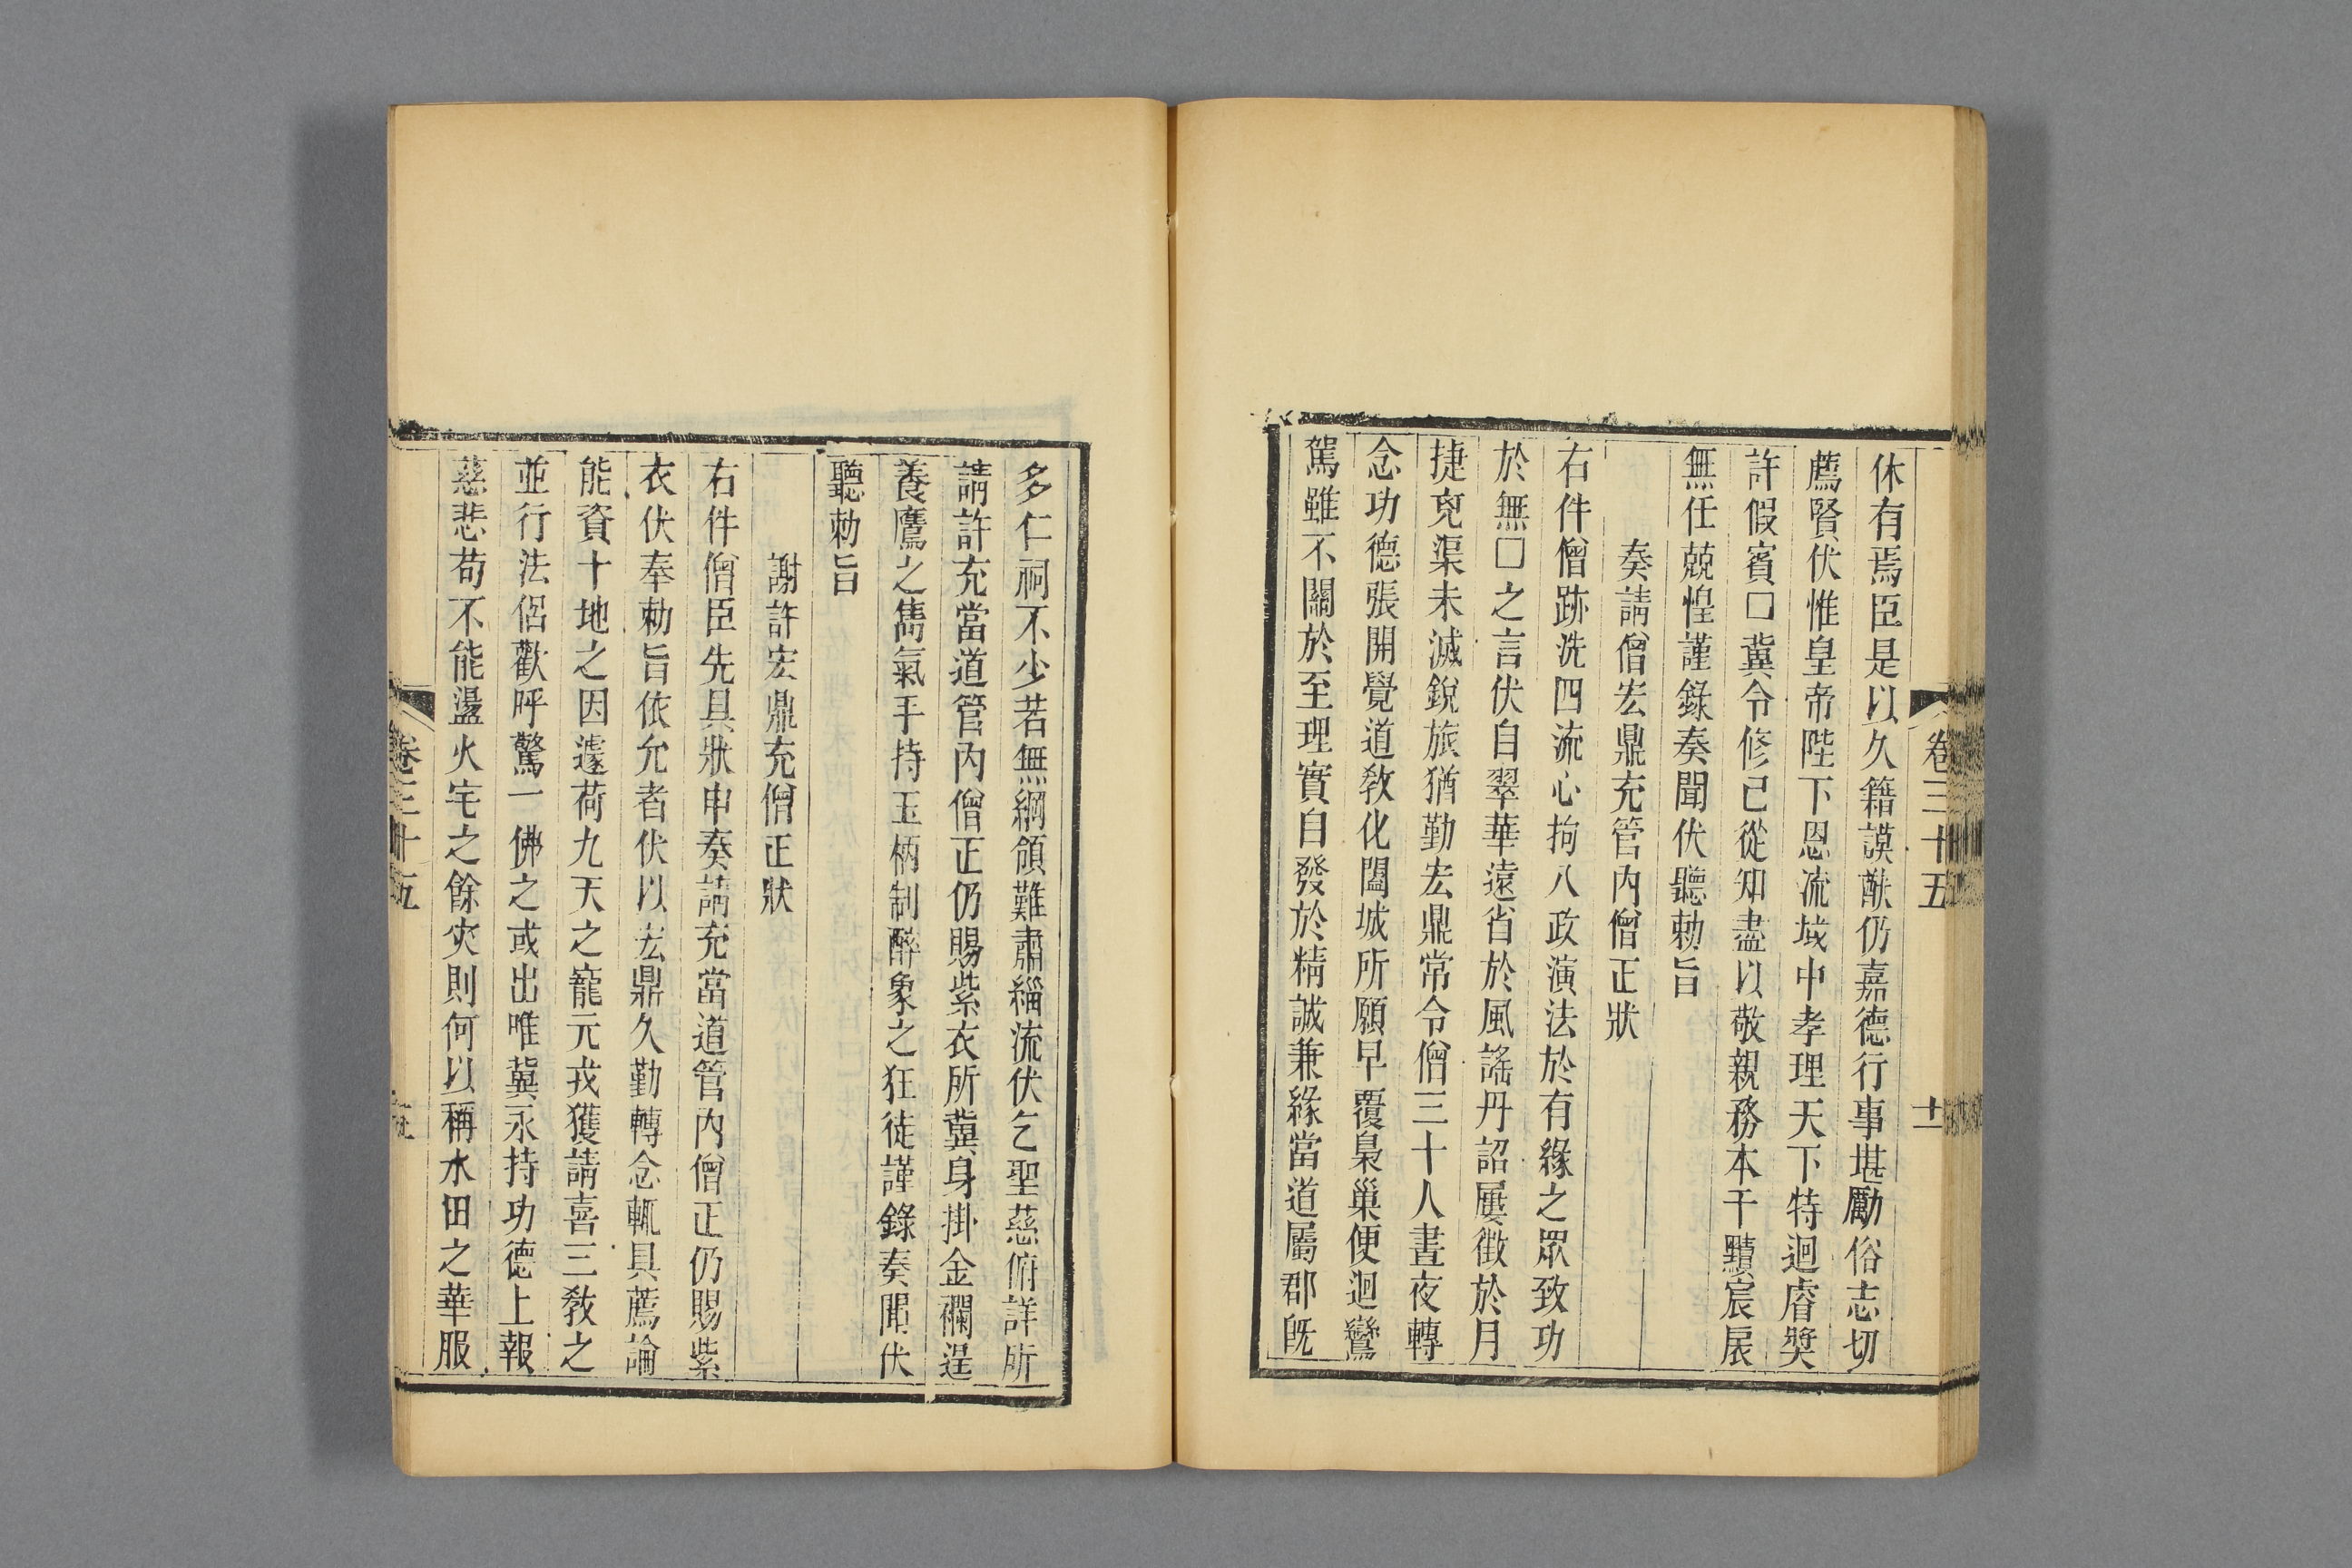 卷三十五
十一
休有焉臣是以久籍謨猷仍嘉德行事堪勵俗志切
薦賢伏惟皇帝陛下恩流域中孝理天下特迴睿奬
許假賓□冀令修己從知盡以敬親務本干黷宸扆
無任兢惶謹錄奏聞伏聽勅旨
奏請僧宏鼎充管內僧正狀
右件僧跡洗四流心拘八政演法於有緣之眾致功
於無□之言伏自翠華遠省於風謠丹詔屢徵於月
捷兇渠未滅銳旅猶勤宏鼎常令僧三十人晝夜轉
念功德張開覺道敎化闔城所願早覆梟巢便迴鸞
駕雖不關於至理實自發於精誠兼緣當道屬郡旣
多仁祠不少若無綱領難肅緇流伏乞聖慈俯詳所
請許充當道管內僧正仍賜紫衣所冀身掛金襴逞
養鷹之雋氣手持玉柄制醉象之狂徒謹錄奏聞伏
聽勅旨
謝許宏鼎充僧正狀
右件僧臣先具狀申奏請充當道管內僧正仍賜紫
衣伏奉勅旨依允者伏以宏鼎久勤轉念輒具薦論
能資十地之因遽荷九天之寵元戎獲請喜三敎之
並行法侶歡呼驚一佛之或出唯冀永持功德上報
慈悲苟不能盪火宅之餘灾則何以稱水田之華服
卷三十五